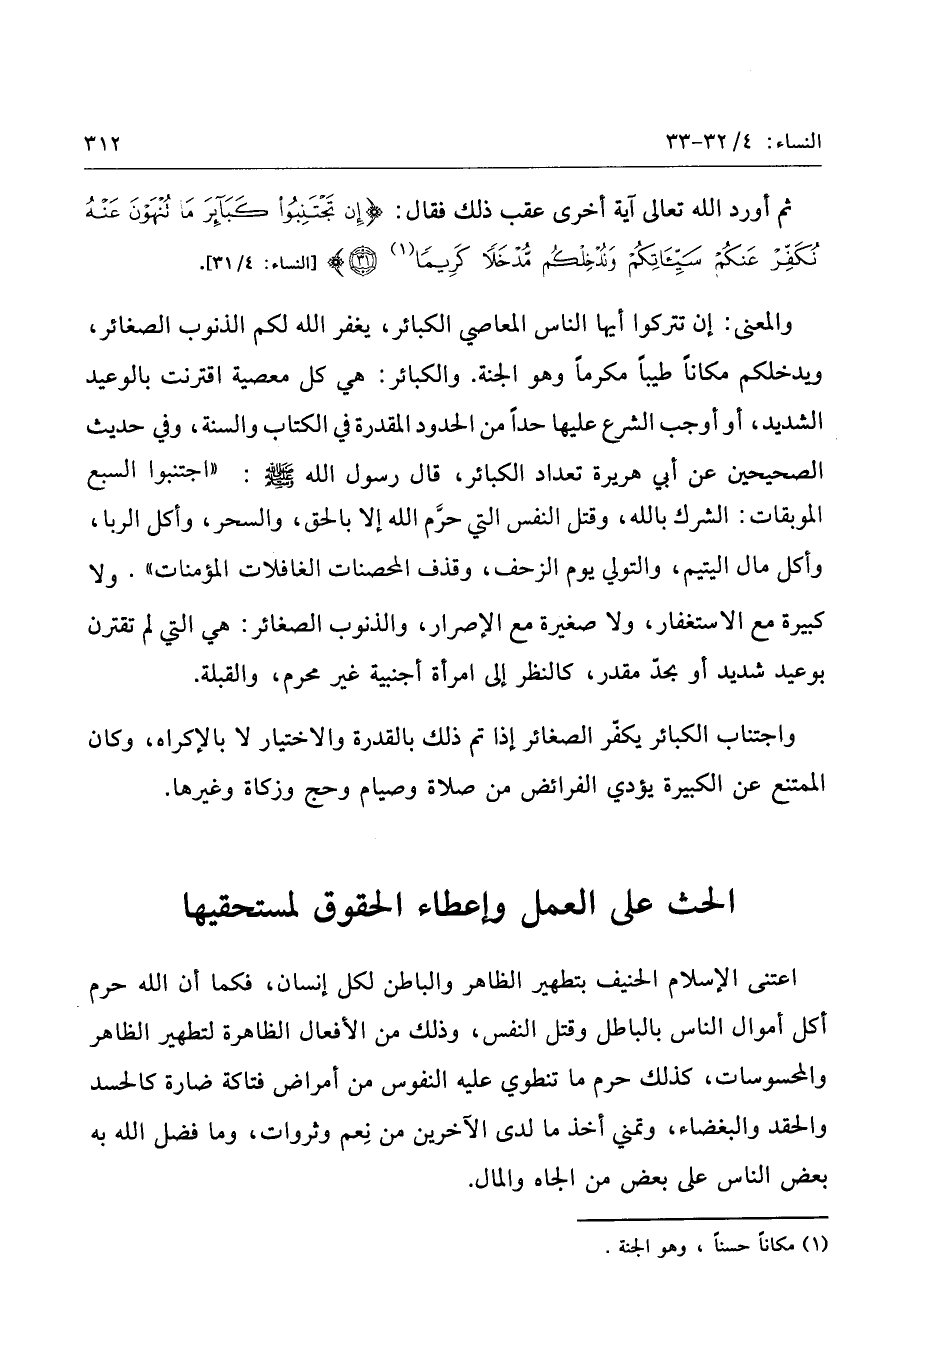 النساء: ٤/ ٣٢-٣٣ ٣١٢
ثم أورد الله تعالى آية أخرى عقب ذلك فقال: ﴿إِن تَجْتَنِبُوا۟ كَبَآئِرَ مَا نُنْهَوْنَ عَنْهُ
نُكَفِّرْ عَنكُمْ سَيِّـَٔاتِكُمْ وَنُدْخِلْكُم مُّدْخَلًا كَرِيمًا(١) ٣١﴾ [النساء: ٤/ ٣١].
والمعنى: إن تتركوا أيها الناس المعاصي الكبائر، يغفر الله لكم الذنوب الصغائر،
ويدخلكم مكاناً طيباً مكرماً وهو الجنة. والكبائر: هي كل معصية اقترنت بالوعيد
الشديد، أو أوجب الشرع عليها حداً من الحدود المقدرة في الكتاب والسنة، وفي حديث
الصحيحين عن أبي هريرة تعداد الكبائر، قال رسول الله ﷺ : «اجتنبوا السبع
الموبقات: الشرك بالله، وقتل النفس التي حرَّم الله إلا بالحق، والسحر، وأكل الربا،
وأكل مال اليتيم، والتولي يوم الزحف، وقذف المحصنات الغافلات المؤمنات» . ولا
كبيرة مع الاستغفار، ولا صغيرة مع الإصرار، والذنوب الصغائر: هي التي لم تقترن
بوعيد شديد أو بحدّ مقدر، كالنظر إلى امرأة أجنبية غير محرم، والقبلة.
واجتناب الكبائر يكفّر الصغائر إذا تم ذلك بالقدرة والاختيار لا بالإكراه، وكان
الممتنع عن الكبيرة يؤدي الفرائض من صلاة وصيام وحج وزكاة وغيرها.
الحث على العمل وإعطاء الحقوق لمستحقيها
اعتنى الإسلام الحنيف بتطهير الظاهر والباطن لكل إنسان، فكما أن الله حرم
أكل أموال الناس بالباطل وقتل النفس، وذلك من الأفعال الظاهرة لتطهير الظاهر
والمحسوسات، كذلك حرم ما تنطوي عليه النفوس من أمراض فتاكة ضارة كالحسد
والحقد والبغضاء، وتمني أخذ ما لدى الآخرين من نِعم وثروات، وما فضل الله به
بعض الناس على بعض من الجاه والمال.
(١) مكاناً حسناً ، وهو الجنة .